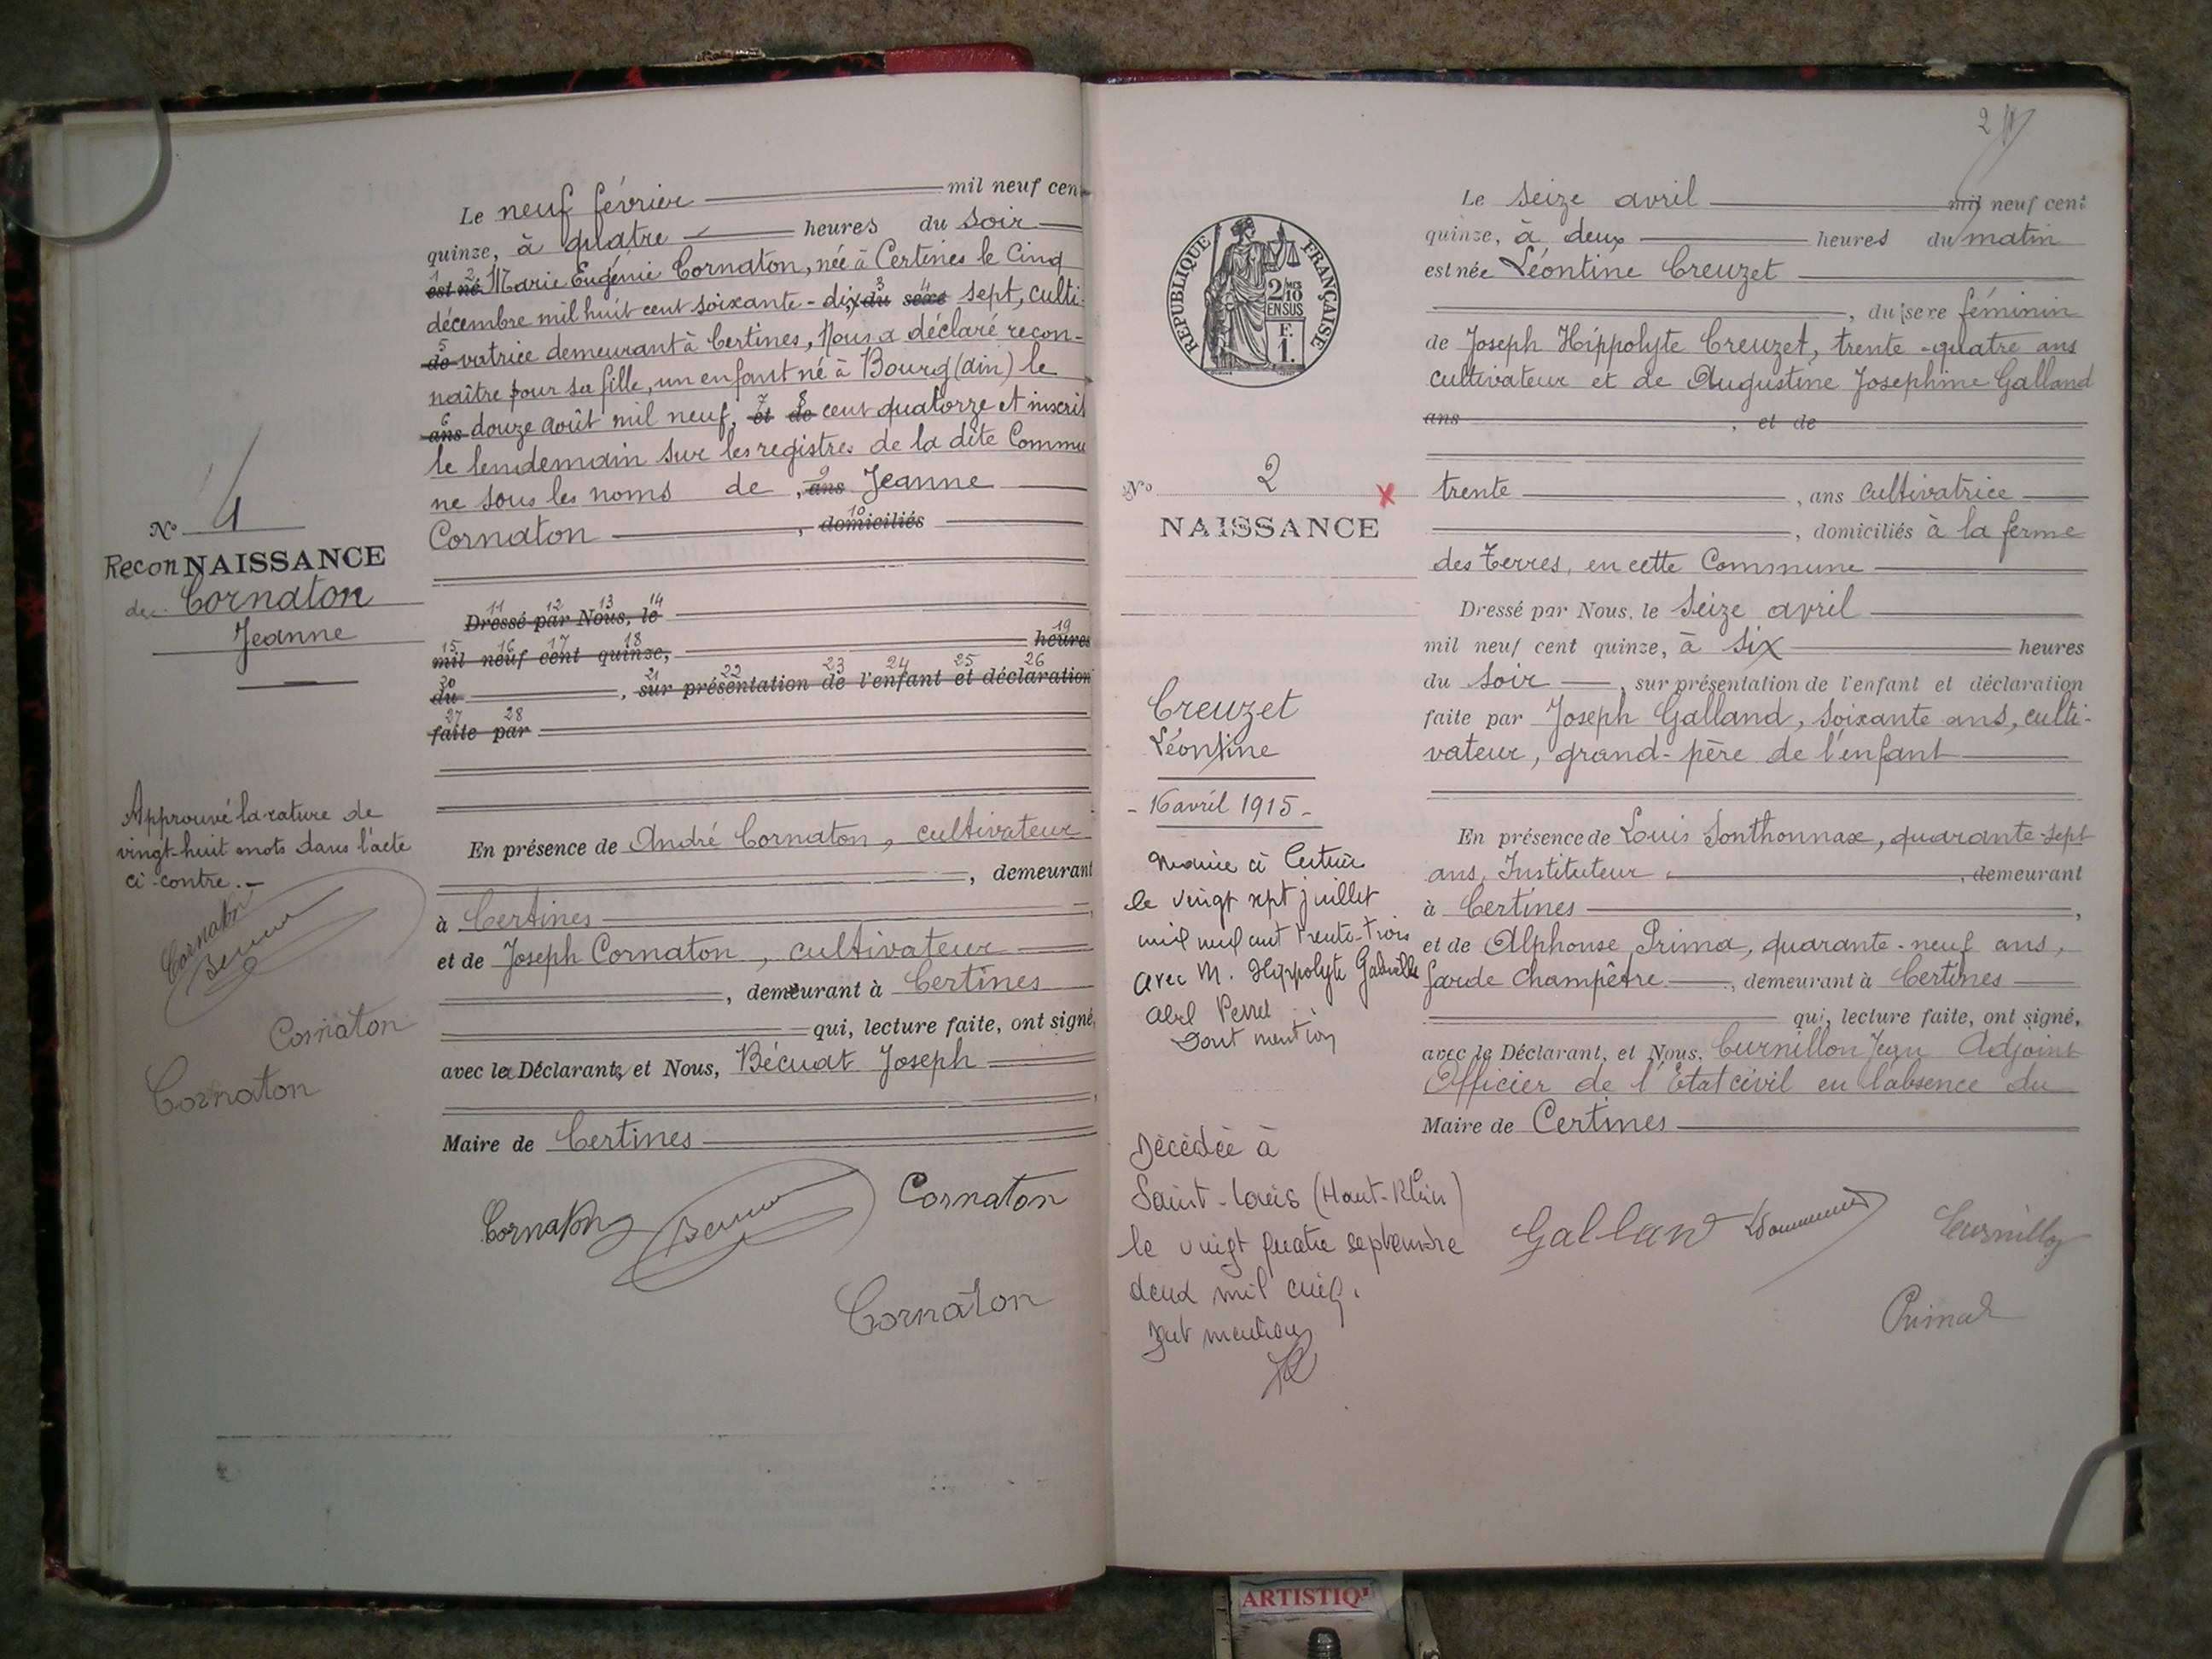 Le neuf février mil neuf cen
quinze, à quatre heures du soir
est né Marie Eugénie Cornaton, née à Certines le Cinq
décembre mil huit cent soixante-dix du sexe sept, culti-
de vatrice demeurant à Certines, Nous a déclaré recon-
naître pour sa fille, un enfant né à Bourg (ain) le
ans douze août mil neuf, et de cent quatorze et inscrit
le lendemain sur les registres de la dite Commu
ne sous les noms de , ans Jeanne
Cornaton , domiciliés
Dressé par Nous, le
mil neuf cent quinze, heures
du , sur présentation de l'enfant et déclaration
faite par
En présence de André Cornaton, cultivateur
, demeurant
à Certines
et de Joseph Cornaton, cultivateur
, demeurant à Certines
qui, lecture faite, ont signé,
avec la Déclarante, et Nous, Bécuat Joseph
Maire de Certines
Cornaton
Cornaton
Cornaton
No 1
ReconNAISSANCE
de Cornaton
Jeanne
Approuvé la rature de
vingt-huit mots dans l'acte
ci-contre.
Cornaton
Cornaton
Cornaton
2
Le seize avril mil neuf cent
quinze, à deux heures du matin
est née Léontine Creuzet
, du sexe féminin
de Joseph Hippolyte Creuzet, trente-quatre ans
cultivateur et de Augustine Josephine Galland
ans , et de
trente , ans cultivatrice
, domiciliés à la ferme
des Terres, en cette Commune
Dressé par Nous, le seize avril
mil neuf cent quinze, à six heures
du soir , sur présentation de l'enfant et déclaration
faite par Joseph Galland, soixante ans, culti-
vateur, grand-père de l'enfant
En présence de Louis Sonthonnax, quarante-sept
ans, Instituteur , demeurant
à Certines ,
et de Alphonse Prima, quarante-neuf ans,
Garde Champêtre , demeurant à Certines
qui, lecture faite, ont signé,
avec le Déclarant, et Nous, Curnillon Jean Adjoint
Officier de l'Etat civil en l'absence du
Maire de Certines
Galland
Curnillon
RÉPUBLIQUE FRANÇAISE
2/10 EN SUS
1 F.
No 2
NAISSANCE
Creuzet
Léontine
- 16 avril 1915 -
Mariée à Certines
le vingt sept juillet
mil neuf cent trente-trois
avec M. Hippolyte Gabrielle
Abel Perret
Dont mention
Décédée à
Saint-Louis (Haut-Rhin)
le vingt quatre septembre
deux mil cinq.
Dont mention
ARTISTIQ